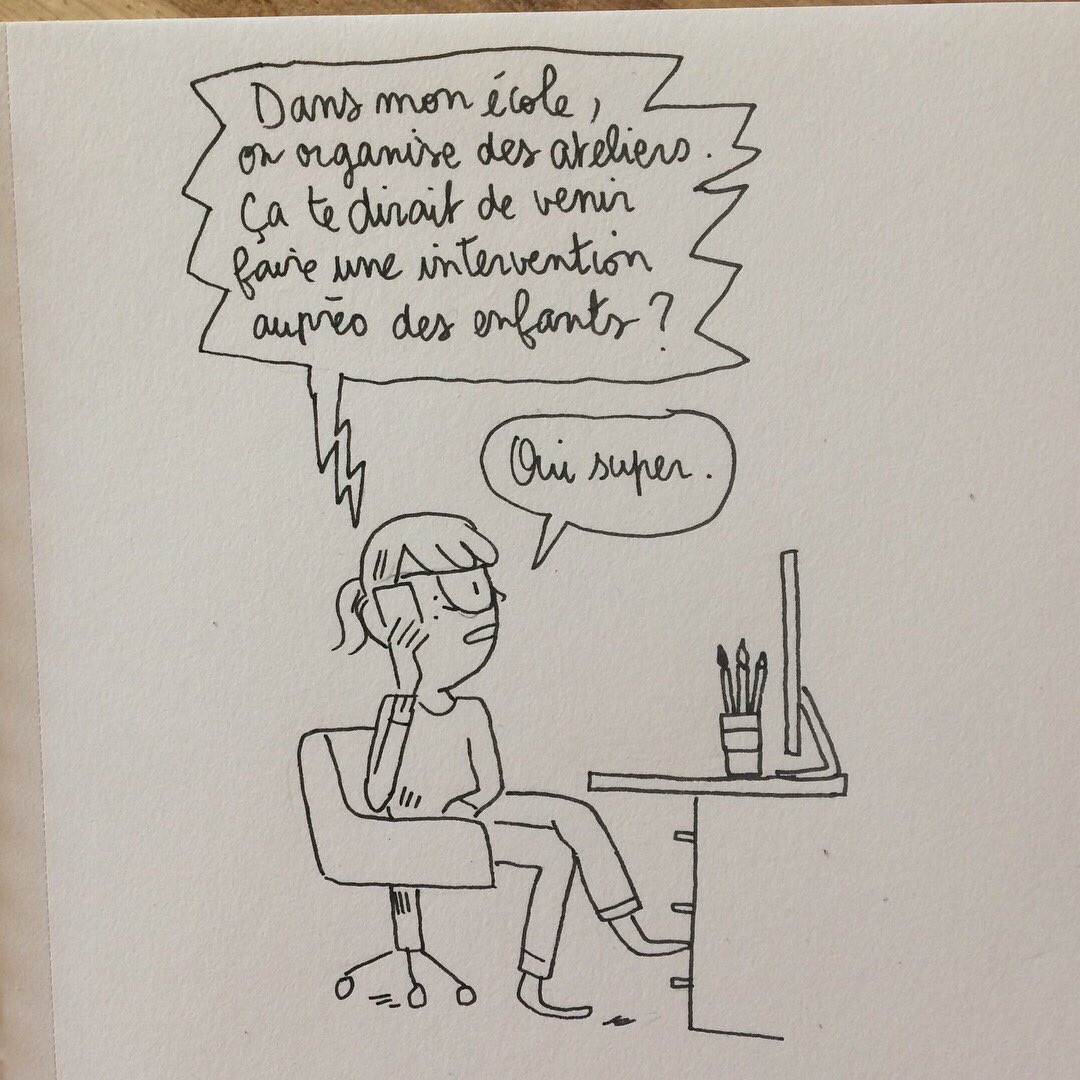 Dans mon école,
on organise des ateliers.
Ça te dirait de venir
faire une intervention
auprès des enfants ?
Oui super.